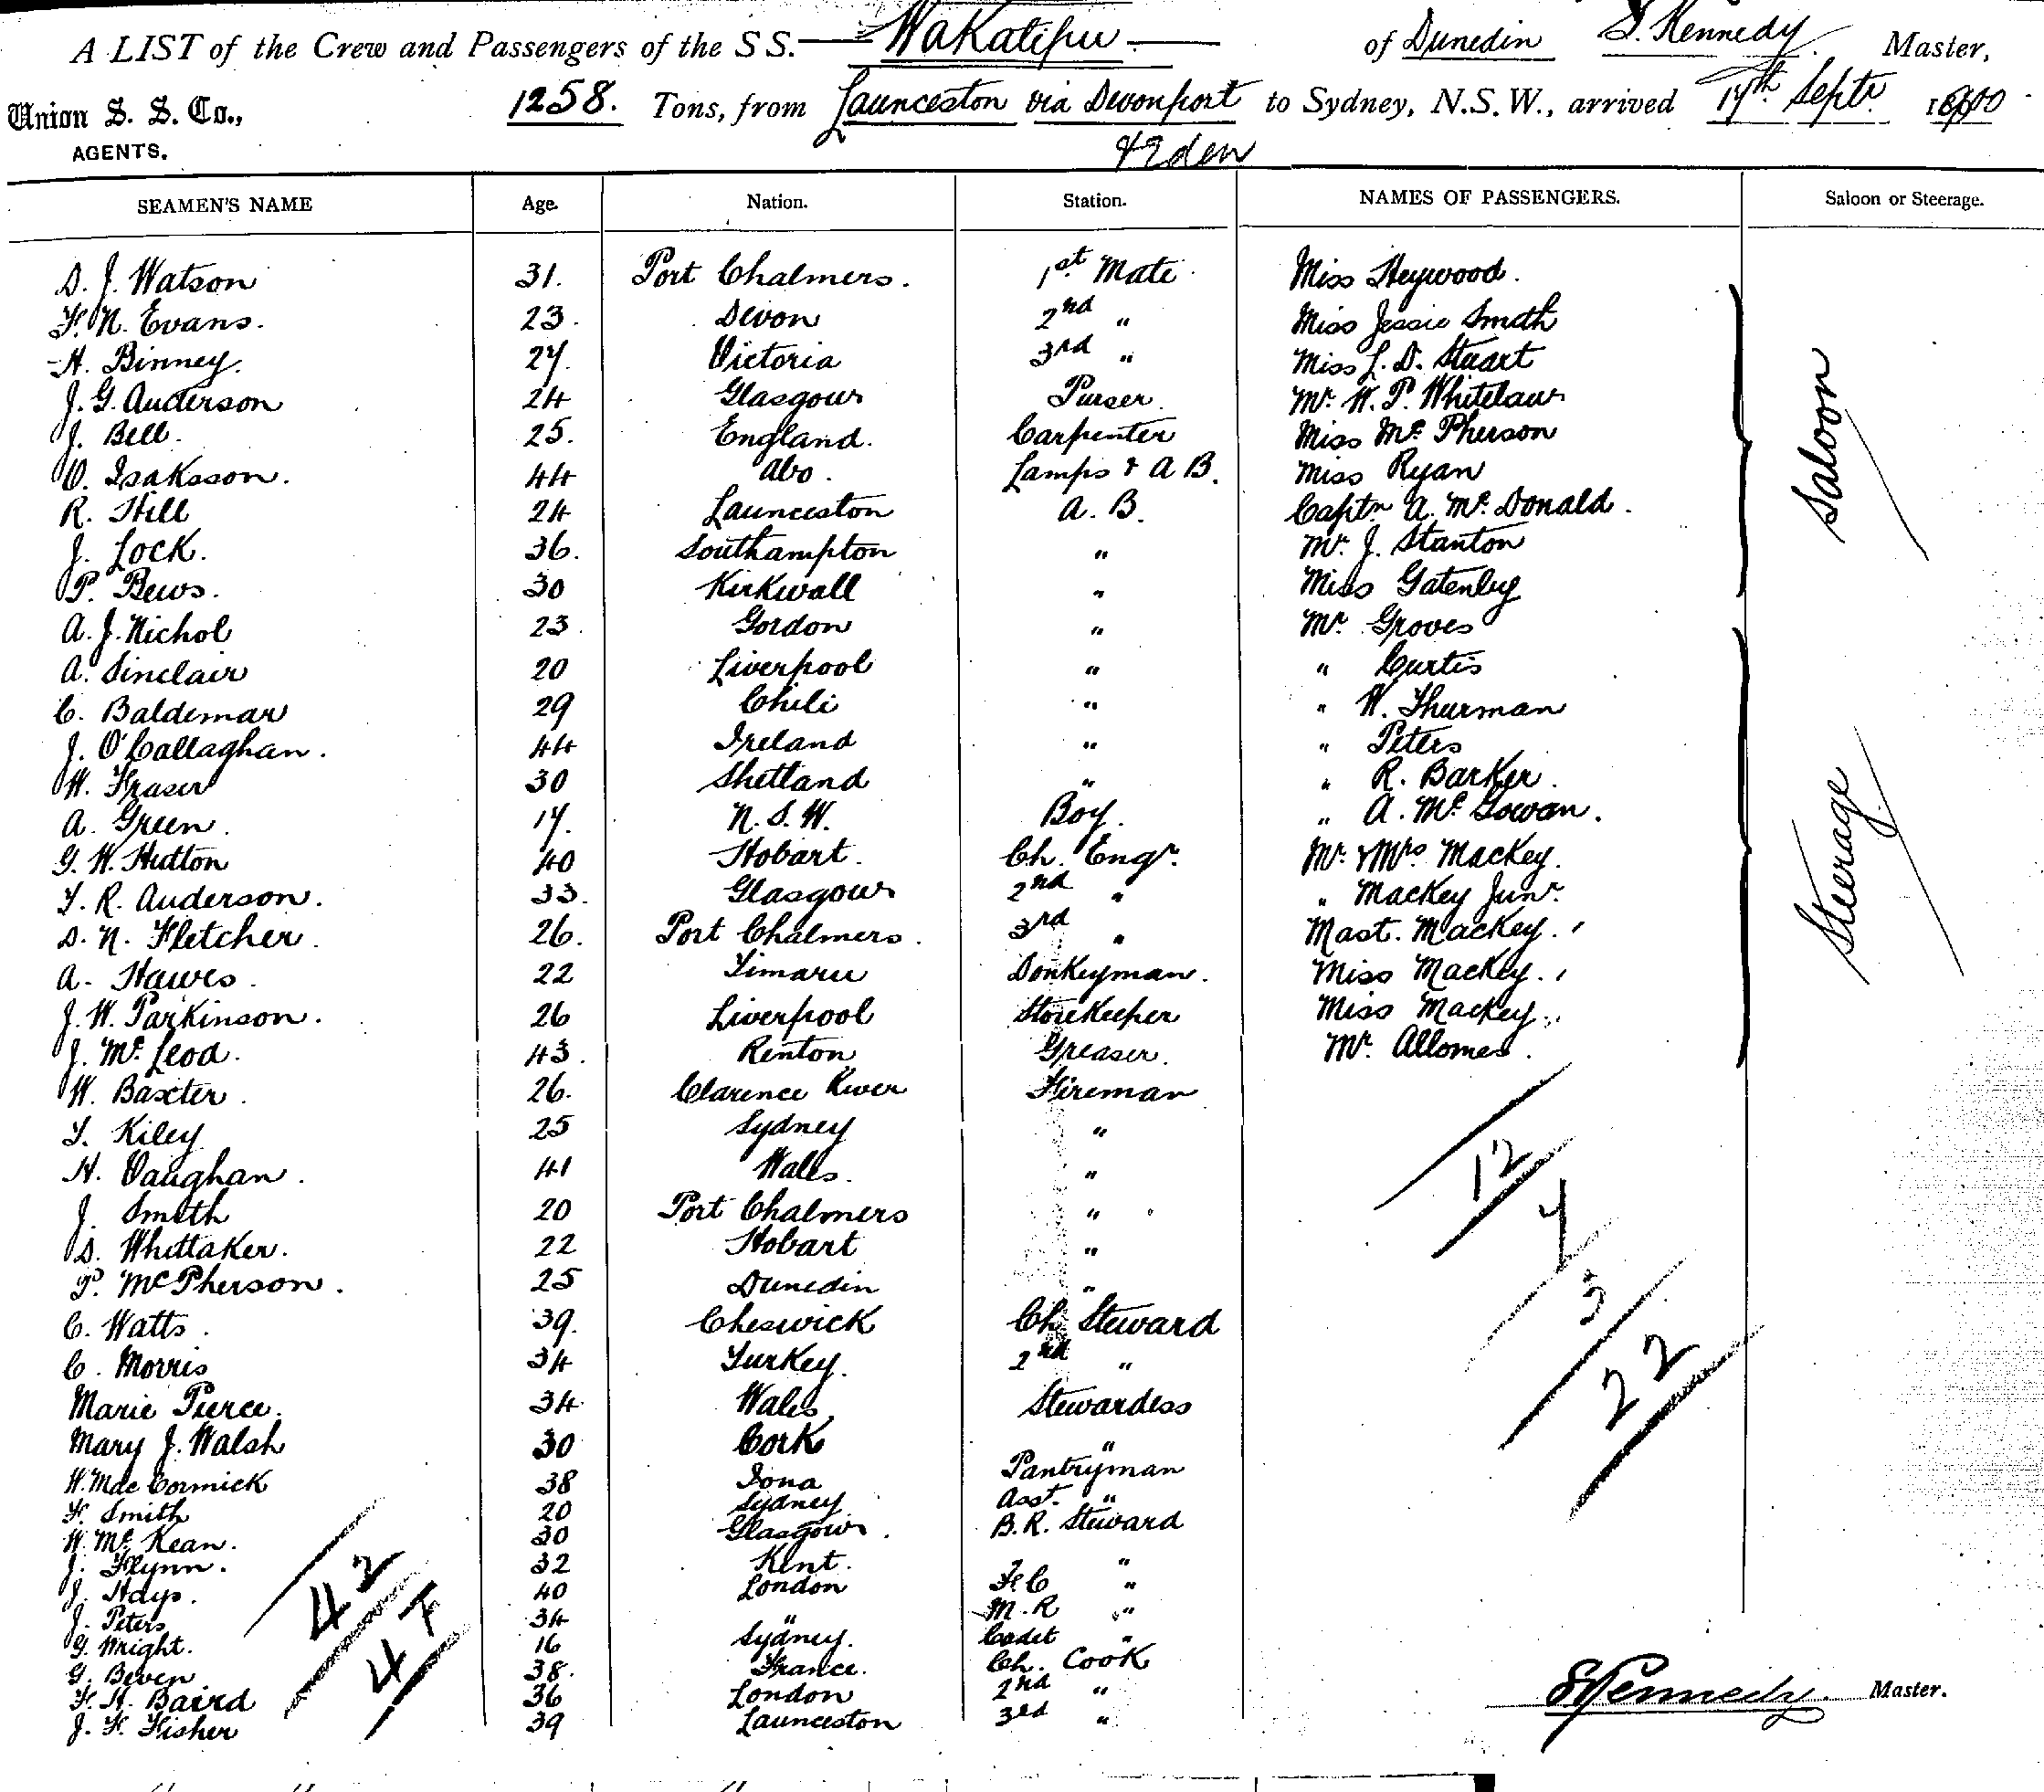 A LIST of the Crew and Passengers of the S S. Wakatipu of Dunedin S. Kennedy Master,
Union S. S. Co., AGENTS. 1258. Tons, from Launceston via Devonport & Eden to Sydney, N.S.W., arrived 17th Septr 1900
SEAMEN'S NAME Age. Nation. Station. NAMES OF PASSENGERS. Saloon or Steerage.
D. J. Watson 31. Port Chalmers. 1st Mate Miss Heywood.
F. N. Evans. 23. Devon 2nd " Miss Jessie Smith
H. Binney. 27. Victoria 3rd " Miss L. D. Stuart
J. G. Anderson 24 Glasgow Purser Mr. W. P. Whitelaw
J. Bell. 25. England. Carpenter Miss McPherson
O. Isaksson. 44 Abo. Lamps & A B. Miss Ryan
R. Hill 24 Launceston A. B. Captn A. McDonald.
J. Lock. 36. Southampton " Mr. J. Stanton
P. Bews. 30 Kirkwall " Miss Gatenby
Saloon
A. J. Nichol 23. Gordon " Mr. Groves
A. Sinclair 20 Liverpool " " Curtis
C. Baldemar 29 Chili " " W. Thurman
J. O'Callaghan. 44 Ireland " " Peters
W. Fraser 30 Shetland " " R. Barker.
A. Green. 17. N. S. W. Boy. " A. McGowan.
G. W. Hutton 40 Hobart. Ch. Engr. Mr. & Mrs Mackey.
T. R. Anderson. 33. Glasgow 2nd " " Mackey Junr.
D. N. Fletcher. 26. Port Chalmers. 3rd " Mast. Mackey.
A. Hawes. 22 Timaru Donkeyman. Miss Mackey.
J. W. Parkinson. 26 Liverpool Storekeeper Miss Mackey.
J. McLeod. 43. Renton Greaser. Mr. Allomes.
Steerage
W. Baxter. 26. Clarence River Fireman
T. Kiley 25 Sydney "
H. Vaughan. 41 Wales. " 12
J. Smith 20 Port Chalmers " 7
D. Whittaker. 22 Hobart "
P. McPherson. 25 Dunedin " 3
C. Watts. 39. Cheswick Ch Steward
C. Morris 34 Turkey. 2nd " 22
Marie Pierce. 34 Wales Stewardess
Mary J. Walsh 30 Cork "
W. MacCormick 38 Iona Pantryman
F. Smith 20 Sydney Asst. "
W. McKean. 30 Glasgow. B.R. Steward
J. Flynn. 32 Kent. "
J. Hays. 40 London F.C "
J. Peters 34 " M.R "
G. Wright. 16 Sydney. Cadet "
G. Beven 38. France. Ch. Cook
F. H. Baird 36 London 2nd "
J. F. Fisher 39 Launceston 3rd "
42
S Kennedy. Master.